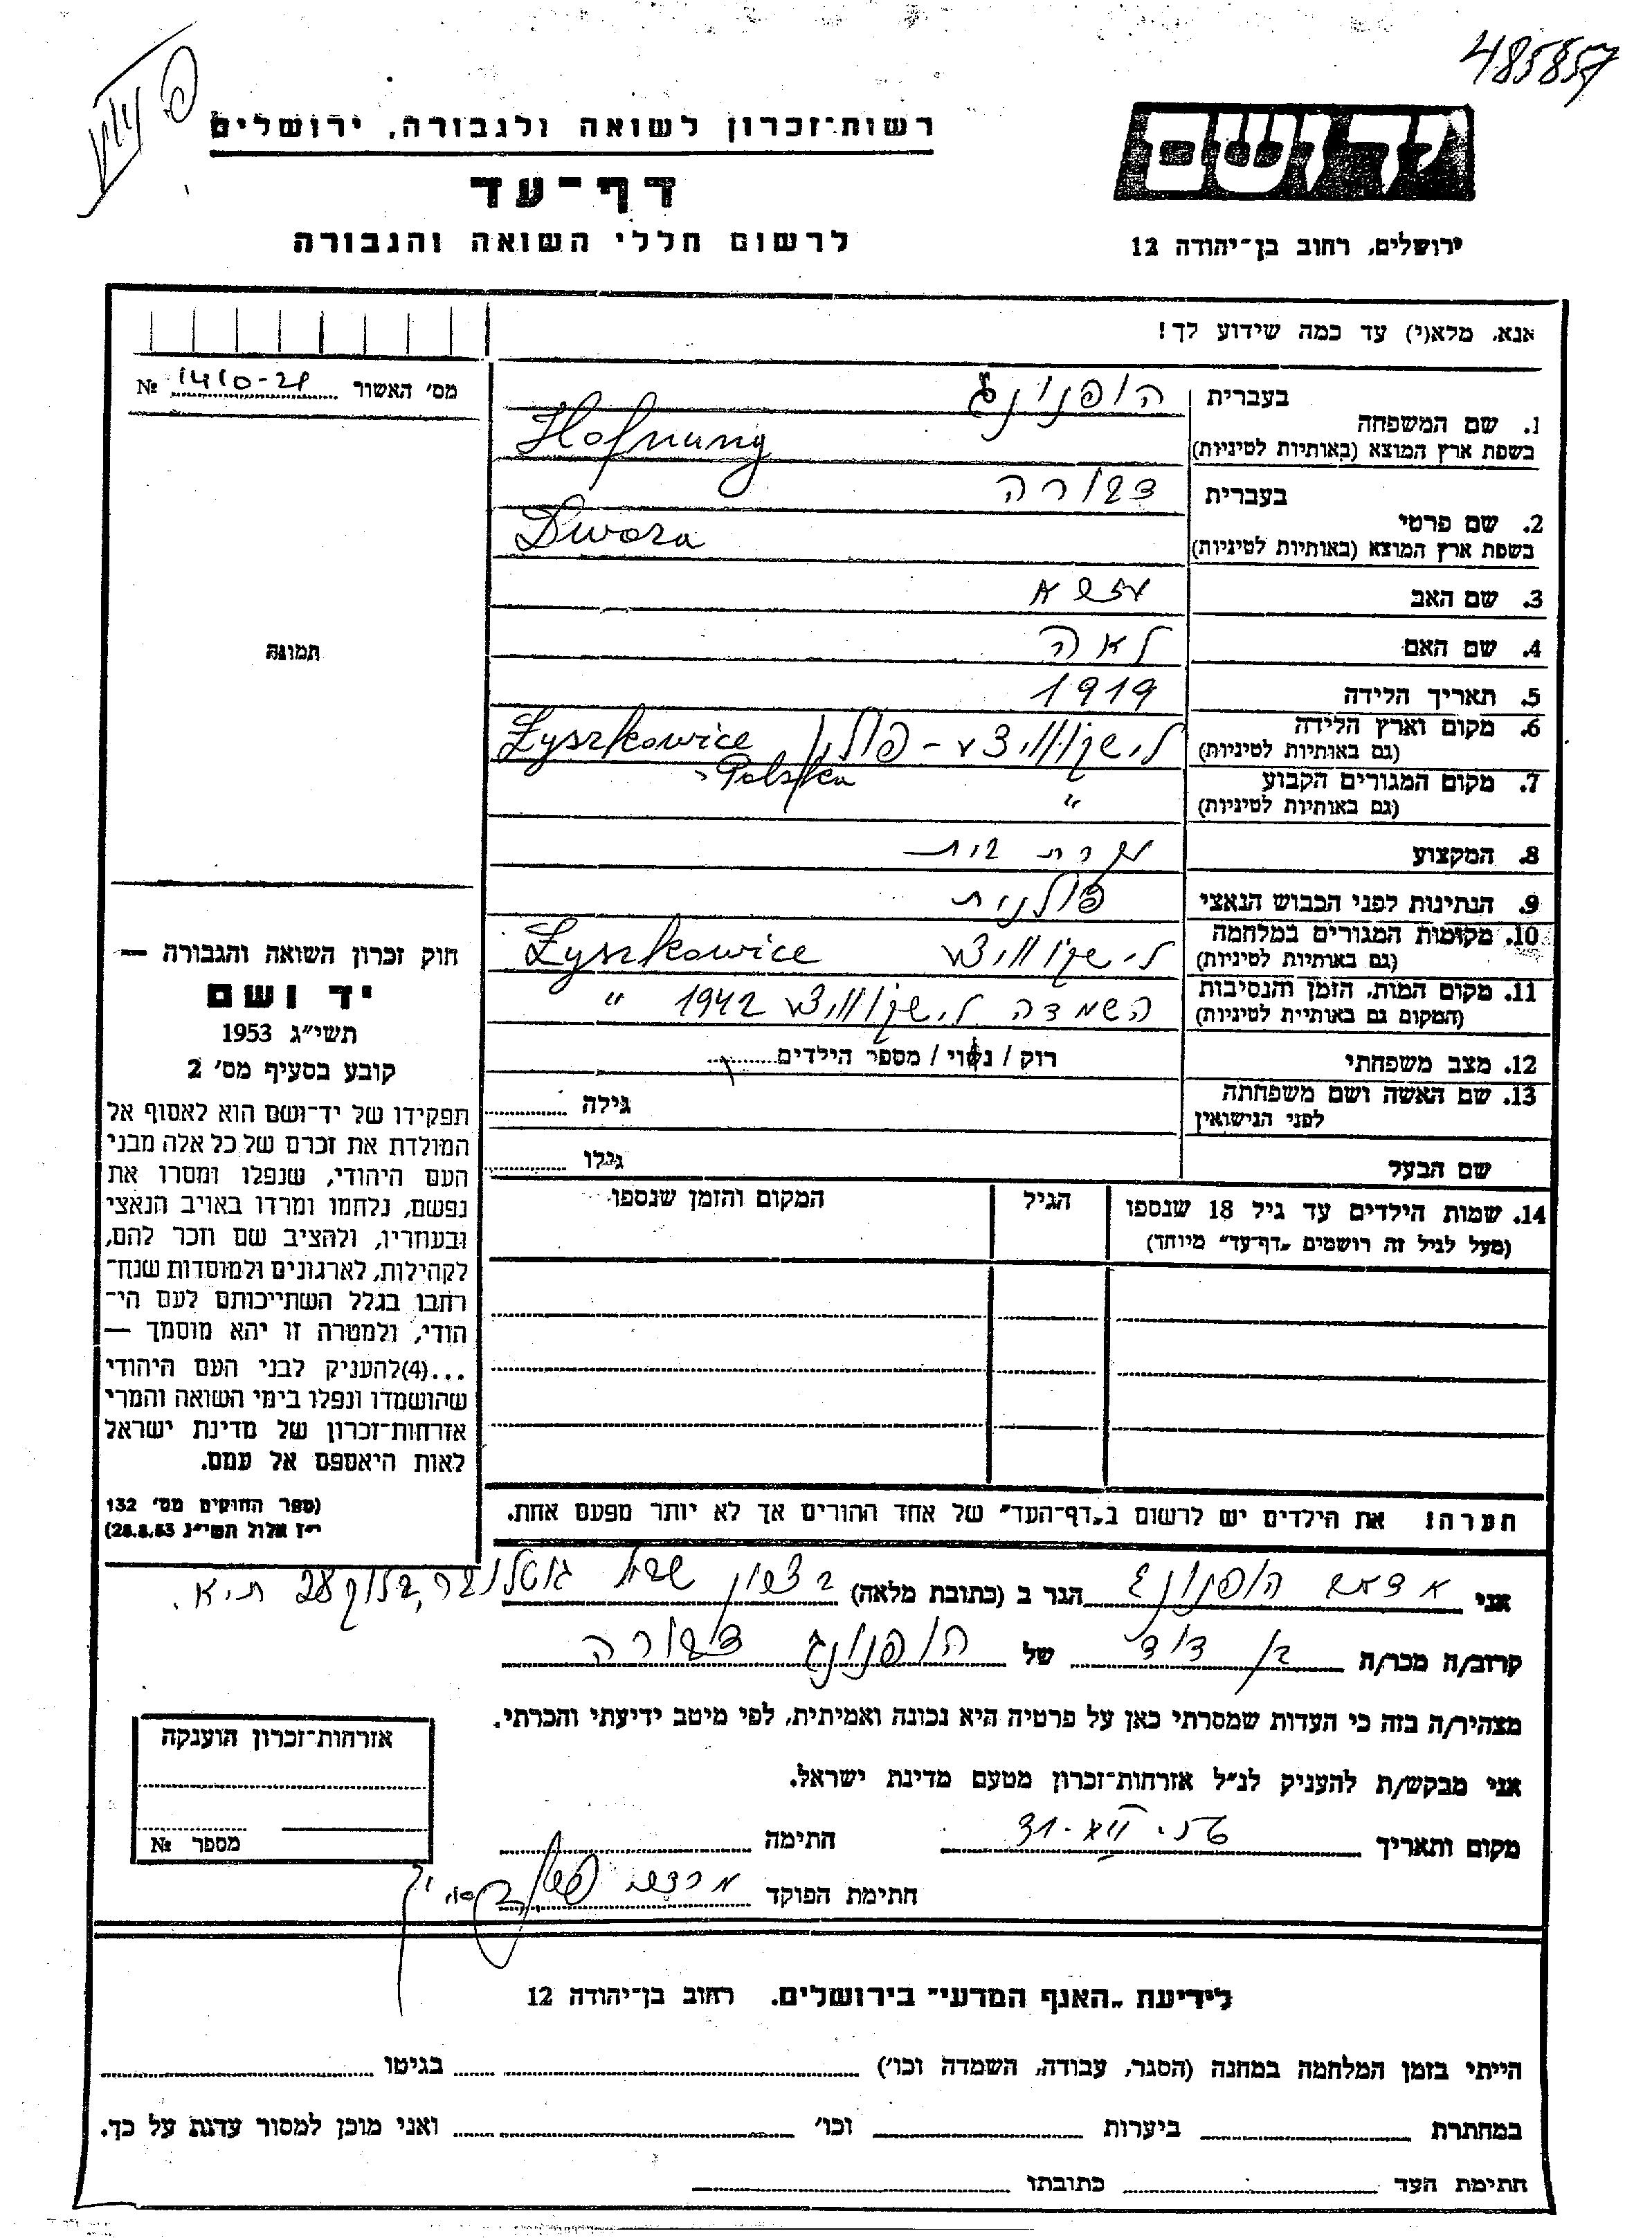 485857
יד ושם
רשות־זכרון לשואה ולגבורה, ירושלים
דף־עד
לרשום חללי השואה והגבורה
ירושלים, רחוב בן־יהודה 12
אנא, מלא(י) עד כמה שידוע לך!
מס׳ האשור 1410-21 №
תמונה
1. שם המשפחה בעברית הופנונג
בשפת ארץ המוצא (באותיות לטיניות) Hofnung
2. שם פרטי בעברית דבורה
בשפת ארץ המוצא (באותיות לטיניות) Dwora
3. שם האב
4. שם האם לאה
5. תאריך הלידה 1919
6. מקום וארץ הלידה (גם באותיות לטיניות) לישקוביצע - פולין Łyszkowice Polska
7. מקום המגורים הקבוע (גם באותיות לטיניות) "
8. המקצוע עקרת בית
9. הנתינות לפני הכבוש הנאצי פולנית
10. מקומות המגורים במלחמה (גם באותיות לטיניות) Łyszkowice
11. מקום המות, הזמן והנסיבות (המקום גם באותיות לטיניות) השמדה 1942 "
12. מצב משפחתי רוק / נשוי / מספר הילדים
13. שם האשה ושם משפחתה לפני הנישואין גילה
שם הבעל גילו
14. שמות הילדים עד גיל 18 שנספו
(מעל לגיל זה רושמים „דף־עד״ מיוחד)
הגיל
המקום והזמן שנספו
הערה! את הילדים יש לרשום ב„דף־העד״ של אחד ההורים אך לא יותר מפעם אחת.
חוק זכרון השואה והגבורה —
יד ושם
תשי״ג 1953
קובע בסעיף מס׳ 2
תפקידו של יד־ושם הוא לאסוף אל
המולדת את זכרם של כל אלה מבני
העם היהודי, שנפלו ומסרו את
נפשם, נלחמו ומרדו באויב הנאצי
ובעוזריו, ולהציב שם וזכר להם,
לקהילות, לארגונים ולמוסדות שנח־
רחבו בגלל השתייכותם לעם הי־
הודי, ולמטרה זו יהא מוסמך —
...(4)להעניק לבני העם היהודי
שהושמדו ונפלו בימי השואה והמרי
אזרחות־זכרון של מדינת ישראל
לאות היאספם אל עמם.
(ספר החוקים מס׳ 132
י״ז אלול תשי״ג 28.8.53)
אני הופנונג הגר ב (כתובת מלאה) ת.א.
קרוב/ה מכר/ה בן דוד של הופנונג דבורה
מצהיר/ה בזה כי העדות שמסרתי כאן על פרטיה היא נכונה ואמיתית, לפי מיטב ידיעתי והכרתי.
אני מבקש/ת להעניק לנ״ל אזרחות־זכרון מטעם מדינת ישראל.
מקום ותאריך חתימה
חתימת הפוקד
אזרחות־זכרון הוענקה
מספר №
לידיעת „האגף המדעי״ בירושלים. רחוב בן־יהודה 12
הייתי בזמן המלחמה במחנה (הסגר, עבודה, השמדה וכו׳) בגיטו
במחתרת ביערות וכו׳ ואני מוכן למסור עדות על כך.
חתימת העד כתובתו